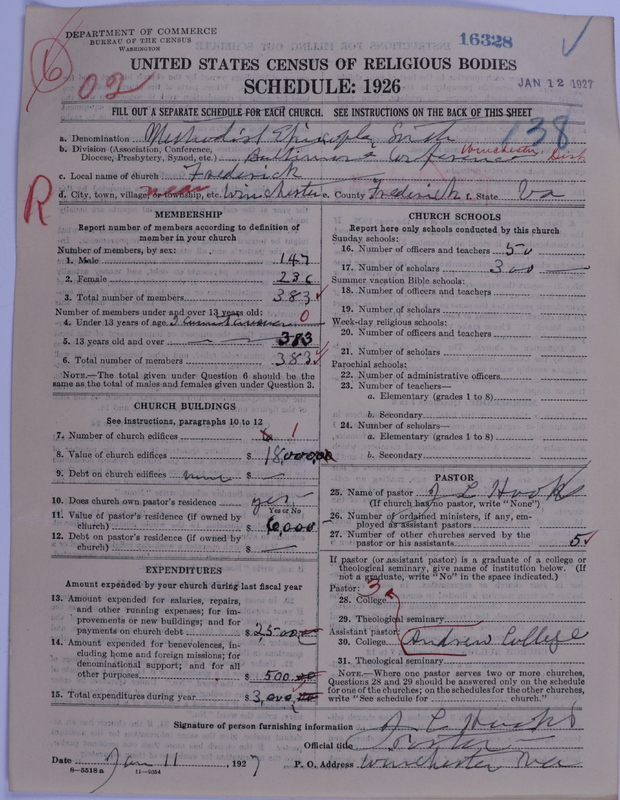 DEPARTMENT OF COMMERCE
BUREAU OF THE CENSUS
WASHINGTON
16328
6
02
UNITED STATES CENSUS OF RELIGIOUS BODIES
SCHEDULE: 1926
JAN 12 1927
FILL OUT A SEPARATE SCHEDULE FOR EACH CHURCH. SEE INSTRUCTIONS ON THE BACK OF THIS SHEET
138
a. Denomination Methodist Episcopla South
b. Division (Association, Conference, Diocese, Presbytery, Synod, etc.) Baltimore Conference Winchester Dist
c. Local name of church Frederick
d. City, town, village, or township, etc. near Winchester e. County Frederick f. State Va
R
MEMBERSHIP
Report number of members according to definition of member in your church
Number of members, by sex:
1. Male 147
2. Female 236
3. Total number of members 383
Number of members under and over 13 years old:
4. Under 13 years of age I cannot answer 0
5. 13 years old and over 383
6. Total number of members 383
NOTE.—The total given under Question 6 should be the same as the total of males and females given under Question 3.
CHURCH BUILDINGS
See instructions, paragraphs 10 to 12
7. Number of church edifices 1
8. Value of church edifices $ 18,000,00
9. Debt on church edifices none $ —
10. Does church own pastor's residence? yes
Yes or No
11. Value of pastor's residence (if owned by church) $ 6,000
12. Debt on pastor's residence (if owned by church) $ —
EXPENDITURES
Amount expended by your church during last fiscal year
13. Amount expended for salaries, repairs, and other running expenses; for improvements or new buildings; and for payments on church debt $ 2500
14. Amount expended for benevolences, including home and foreign missions; for denominational support; and for all other purposes $ 500.00
15. Total expenditures during year $ 3,000.00
CHURCH SCHOOLS
Report here only schools conducted by this church
Sunday schools:
16. Number of officers and teachers 50
17. Number of scholars 300
Summer vacation Bible schools:
18. Number of officers and teachers
19. Number of scholars
Week-day religious schools:
20. Number of officers and teachers
21. Number of scholars
Parochial schools:
22. Number of administrative officers
23. Number of teachers—
a. Elementary (grades 1 to 8)
b. Secondary
24. Number of scholars—
a. Elementary (grades 1 to 8)
b. Secondary
PASTOR
25. Name of pastor J L Hook
(If church has no pastor, write "None")
26. Number of ordained ministers, if any, employed as assistant pastors
27. Number of other churches served by the pastor or his assistants 5
If pastor (or assistant pastor) is a graduate of a college or theological seminary, give name of institution below. (If not a graduate, write "No" in the space indicated.)
Pastor: 3
28. College
29. Theological seminary
Assistant pastor:
30. College Andrew College
31. Theological seminary
NOTE.—Where one pastor serves two or more churches, Questions 28 and 29 should be answered only on the schedule for one of the churches; on the schedules for the other churches, write "See schedule for church."
Signature of person furnishing information J L Hook
Official title Pastor
Date Jan 11, 1927 P. O. Address Winchester Va
8-5518 a 11-9034